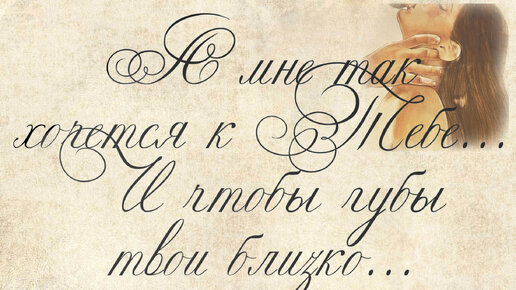 А мне так
хочется к Тебе...
И чтобы губы
твои близко...